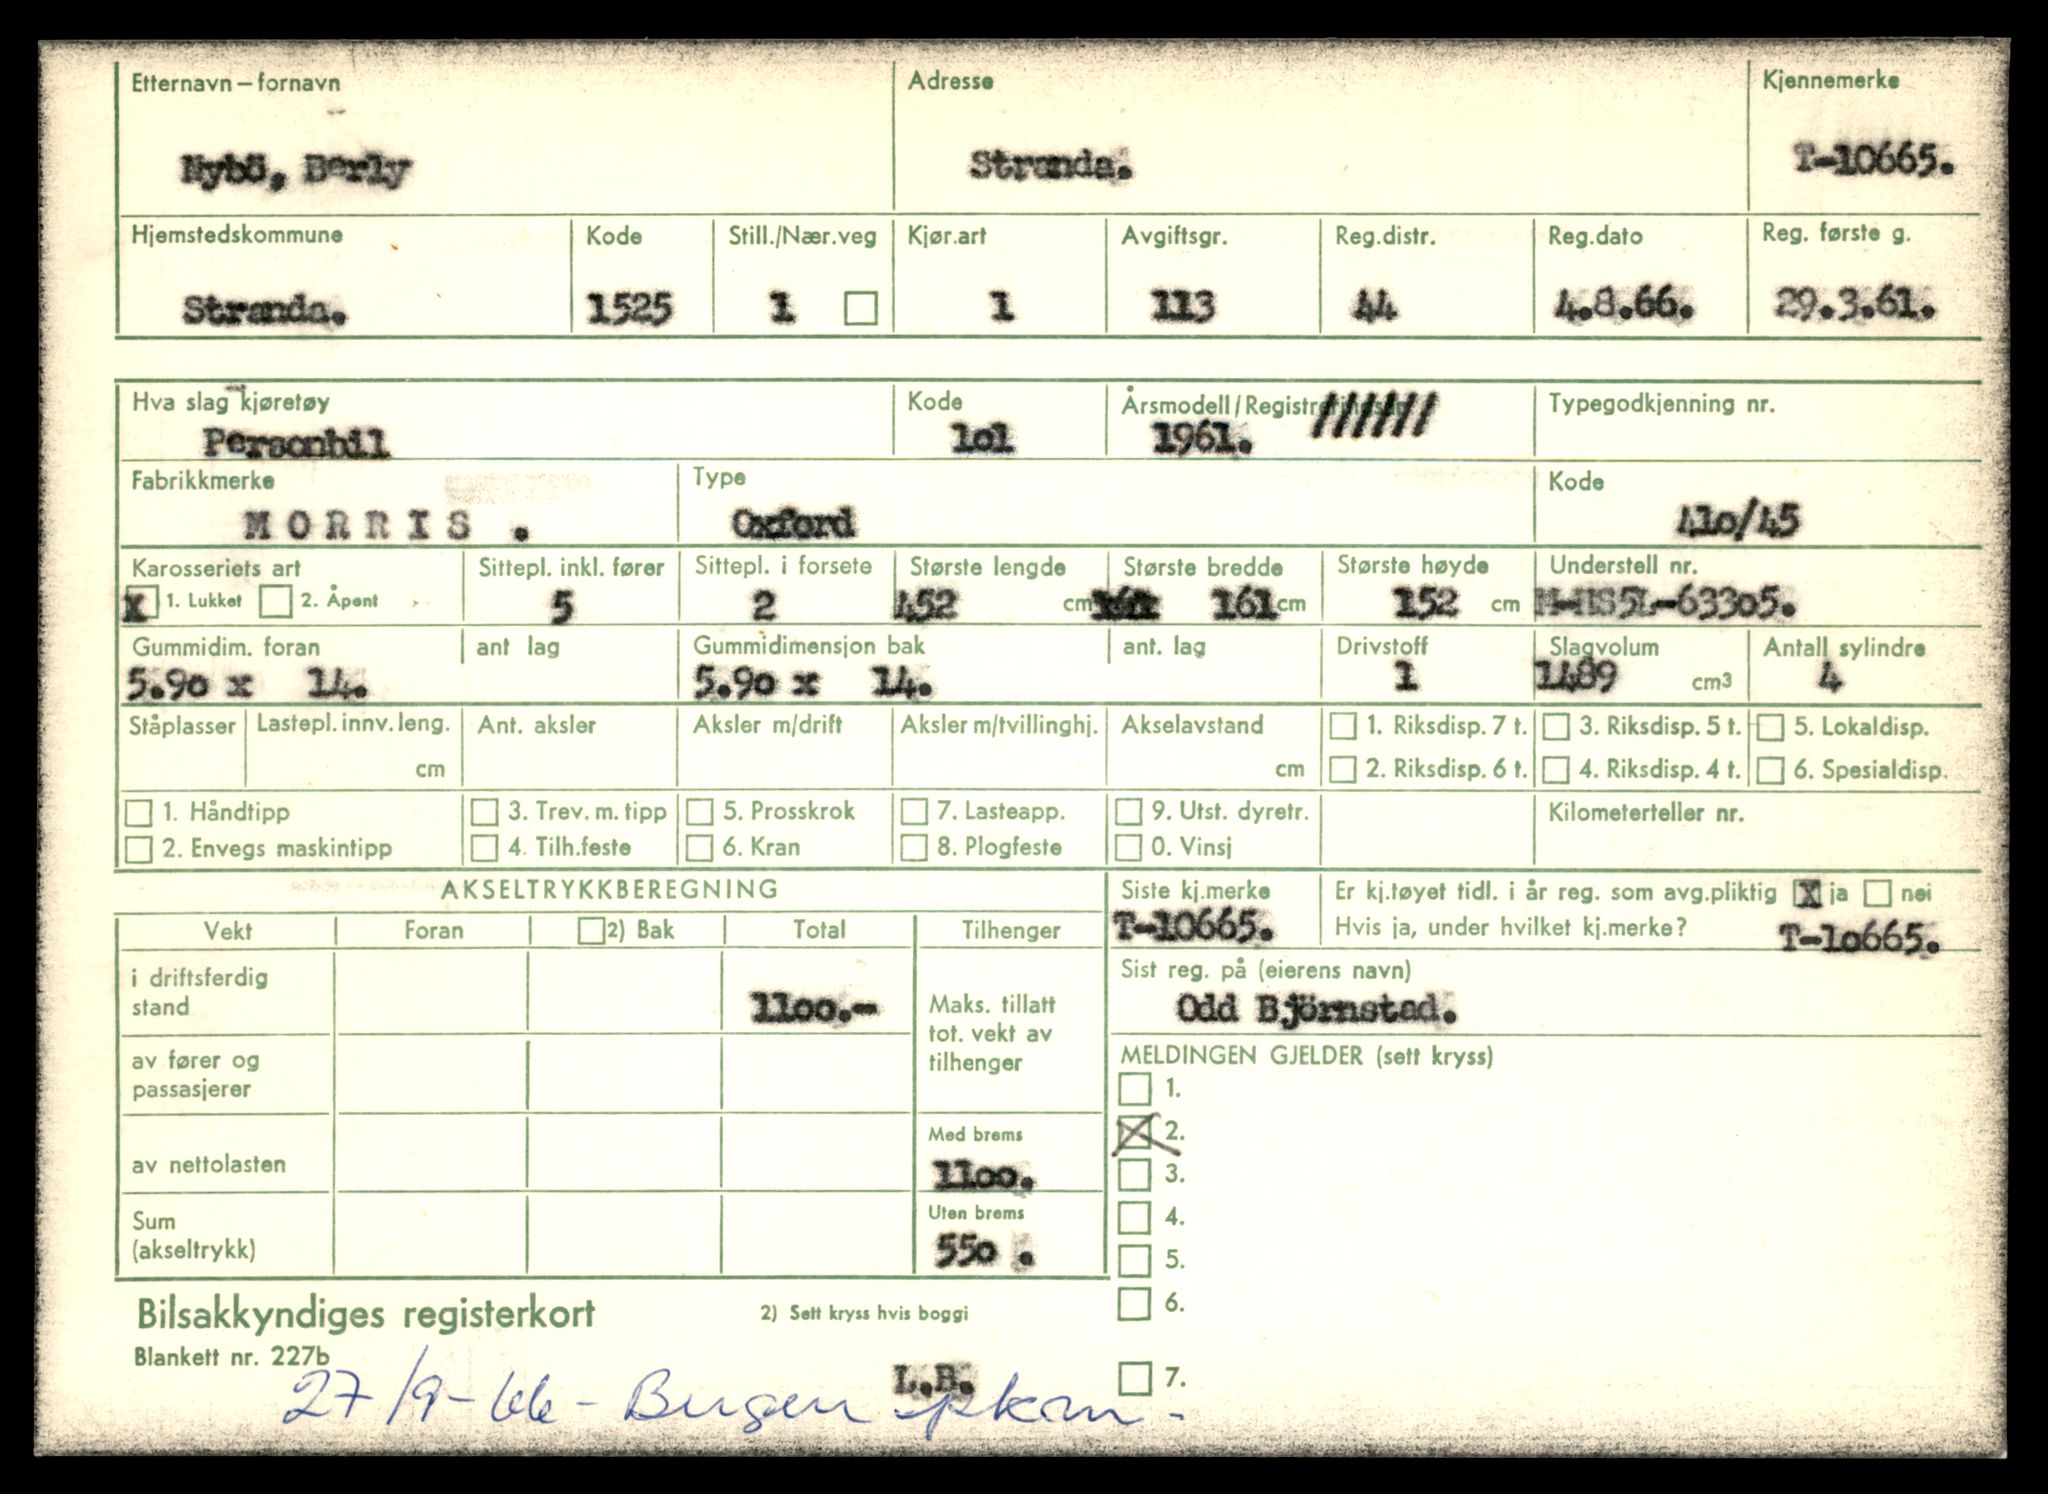 Etternavn – fornavn Adresse Kjennemerke
Nybö, Berly Stranda. T-10665.
Hjemstedskommune Kode Still./Nær.veg Kjør.art Avgiftsgr. Reg.distr. Reg.dato Reg. første g.
Stranda. 1525 1 1 113 44 4.8.66. 29.3.61.
Hva slag kjøretøy Kode Årsmodell/Registreringsår Typegodkjenning nr.
Personbil 1o1 1961. //////
Fabrikkmerke Type Kode
MORRIS . Oxford 41o/45
Karosseriets art Sittepl. inkl. fører Sittepl. i forsete Største lengde Største bredde Største høyde Understell nr.
X 1. Lukket 2. Åpent 5 2 452 cm 161 cm 152 cm M-HS5L-633o5.
Gummidim. foran ant lag Gummidimensjon bak ant. lag Drivstoff Slagvolum Antall sylindre
5.9o x 14. 5.9o x 14. 1 1489 cm3 4
Ståplasser Lastepl. innv. leng. Ant. aksler Aksler m/drift Aksler m/tvillinghj. Akselavstand 1. Riksdisp. 7 t. 3. Riksdisp. 5 t. 5. Lokaldisp.
cm cm 2. Riksdisp. 6 t. 4. Riksdisp. 4 t. 6. Spesialdisp.
1. Håndtipp 3. Trev. m. tipp 5. Prosskrok 7. Lasteapp. 9. Utst. dyretr. Kilometerteller nr.
2. Envegs maskintipp 4. Tilh.feste 6. Kran 8. Plogfeste 0. Vinsj
AKSELTRYKKBEREGNING Siste kj.merke Er kj.tøyet tidl. i år reg. som avg.pliktig X ja nei
Vekt Foran 2) Bak Total Tilhenger T-10665. Hvis ja, under hvilket kj.merke? T-1o665.
i driftsferdig stand 11oo.- Maks. tillatt tot. vekt av tilhenger Sist reg. på (eierens navn)
Odd Björnstad.
av fører og passasjerer MELDINGEN GJELDER (sett kryss)
1.
Med brems X 2.
av nettolasten 11oo. 3.
Sum (akseltrykk) Uten brems 4.
55o . 5.
Bilsakkyndiges registerkort 2) Sett kryss hvis boggi 6.
Blankett nr. 227b
L.B. 7.
27/9-66 - Bergen pkm -